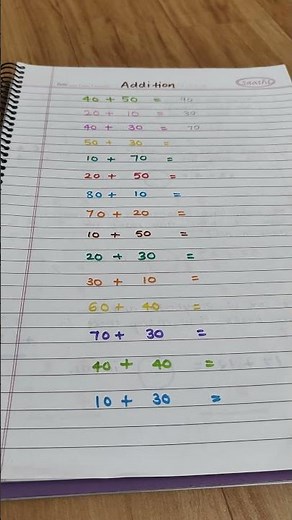 Addition
40 + 50 = 90
20 + 10 = 30
40 + 30 = 70
50 + 30 =
10 + 70 =
20 + 50 =
80 + 10 =
70 + 20 =
10 + 50 =
20 + 30 =
30 + 10 =
60 + 40 =
70 + 30 =
40 + 40 =
10 + 30 =